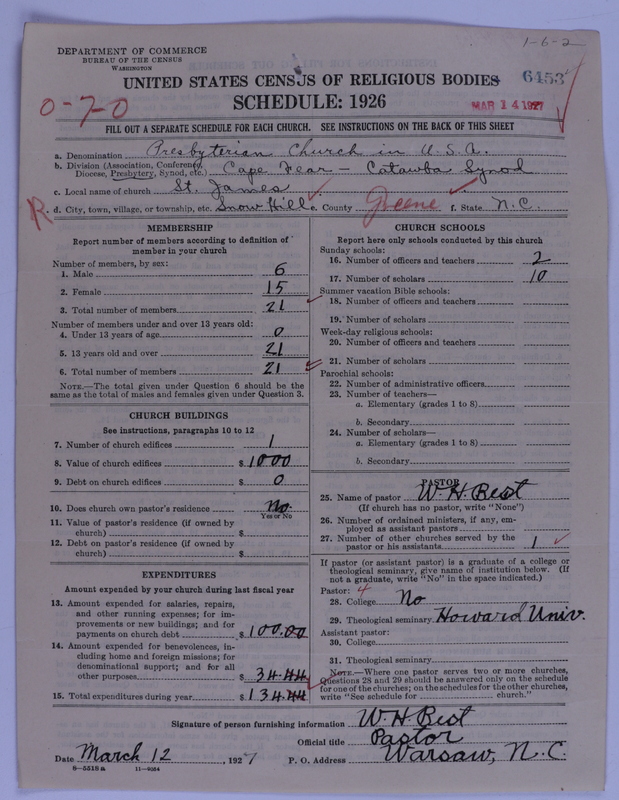 1-6-2
DEPARTMENT OF COMMERCE
BUREAU OF THE CENSUS
WASHINGTON
UNITED STATES CENSUS OF RELIGIOUS BODIES
6453
SCHEDULE: 1926
MAR 14 1927
0-7-0
FILL OUT A SEPARATE SCHEDULE FOR EACH CHURCH. SEE INSTRUCTIONS ON THE BACK OF THIS SHEET
a. Denomination Presbyterian Church in U.S.A.
b. Division (Association, Conference, Diocese, Presbytery, Synod, etc.) Cape Fear - Catawba Synod
c. Local name of church St. James
R. d. City, town, village, or township, etc. Snow Hill e. County Greene f. State N.C.
MEMBERSHIP
Report number of members according to definition of
member in your church
Number of members, by sex:
1. Male 6
2. Female 15
3. Total number of members 21
Number of members under and over 13 years old:
4. Under 13 years of age 0
5. 13 years old and over 21
6. Total number of members 21
NOTE.—The total given under Question 6 should be
same as the total of males and females given under Question 3.
CHURCH BUILDINGS
See instructions, paragraphs 10 to 12
7. Number of church edifices 1
8. Value of church edifices $1000
9. Debt on church edifices $0
10. Does church own pastor's residence No.
Yes or No
11. Value of pastor's residence (if owned by
church) $
12. Debt on pastor's residence (if owned by
church) $
EXPENDITURES
Amount expended by your church during last fiscal year
13. Amount expended for salaries, repairs,
and other running expenses; for im-
provements or new buildings; and for
payments on church debt $100.00
14. Amount expended for benevolences, in-
cluding home and foreign missions; for
denominational support; and for all
other purposes $34.44
15. Total expenditures during year $134.44
CHURCH SCHOOLS
Report here only schools conducted by this church
Sunday schools:
16. Number of officers and teachers 2
17. Number of scholars 10
Summer vacation Bible schools:
18. Number of officers and teachers
19. Number of scholars
Week-day religious schools:
20. Number of officers and teachers
21. Number of scholars
Parochial schools:
22. Number of administrative officers
23. Number of teachers—
a. Elementary (grades 1 to 8)
b. Secondary
24. Number of scholars—
a. Elementary (grades 1 to 8)
b. Secondary
PASTOR
25. Name of pastor W.H. Best
(If church has no pastor, write "None")
26. Number of ordained ministers, if any, em-
ployed as assistant pastors
27. Number of other churches served by the
pastor or his assistants 1
If pastor (or assistant pastor) is a graduate of a college or
theological seminary, give name of institution below. (If
not a graduate, write "No" in the space indicated.)
Pastor: 4
28. College No
29. Theological seminary Howard Univ.
Assistant pastor:
30. College
31. Theological seminary
NOTE.—Where one pastor serves two or more churches,
Questions 28 and 29 should be answered only on the schedule
for one of the churches; on the schedules for the other churches,
write "See schedule for church."
Signature of person furnishing information W.H. Best
Official title Pastor
Date March 12, 1927 P. O. Address Warsaw, N.C.
8—5518 a 11—9084